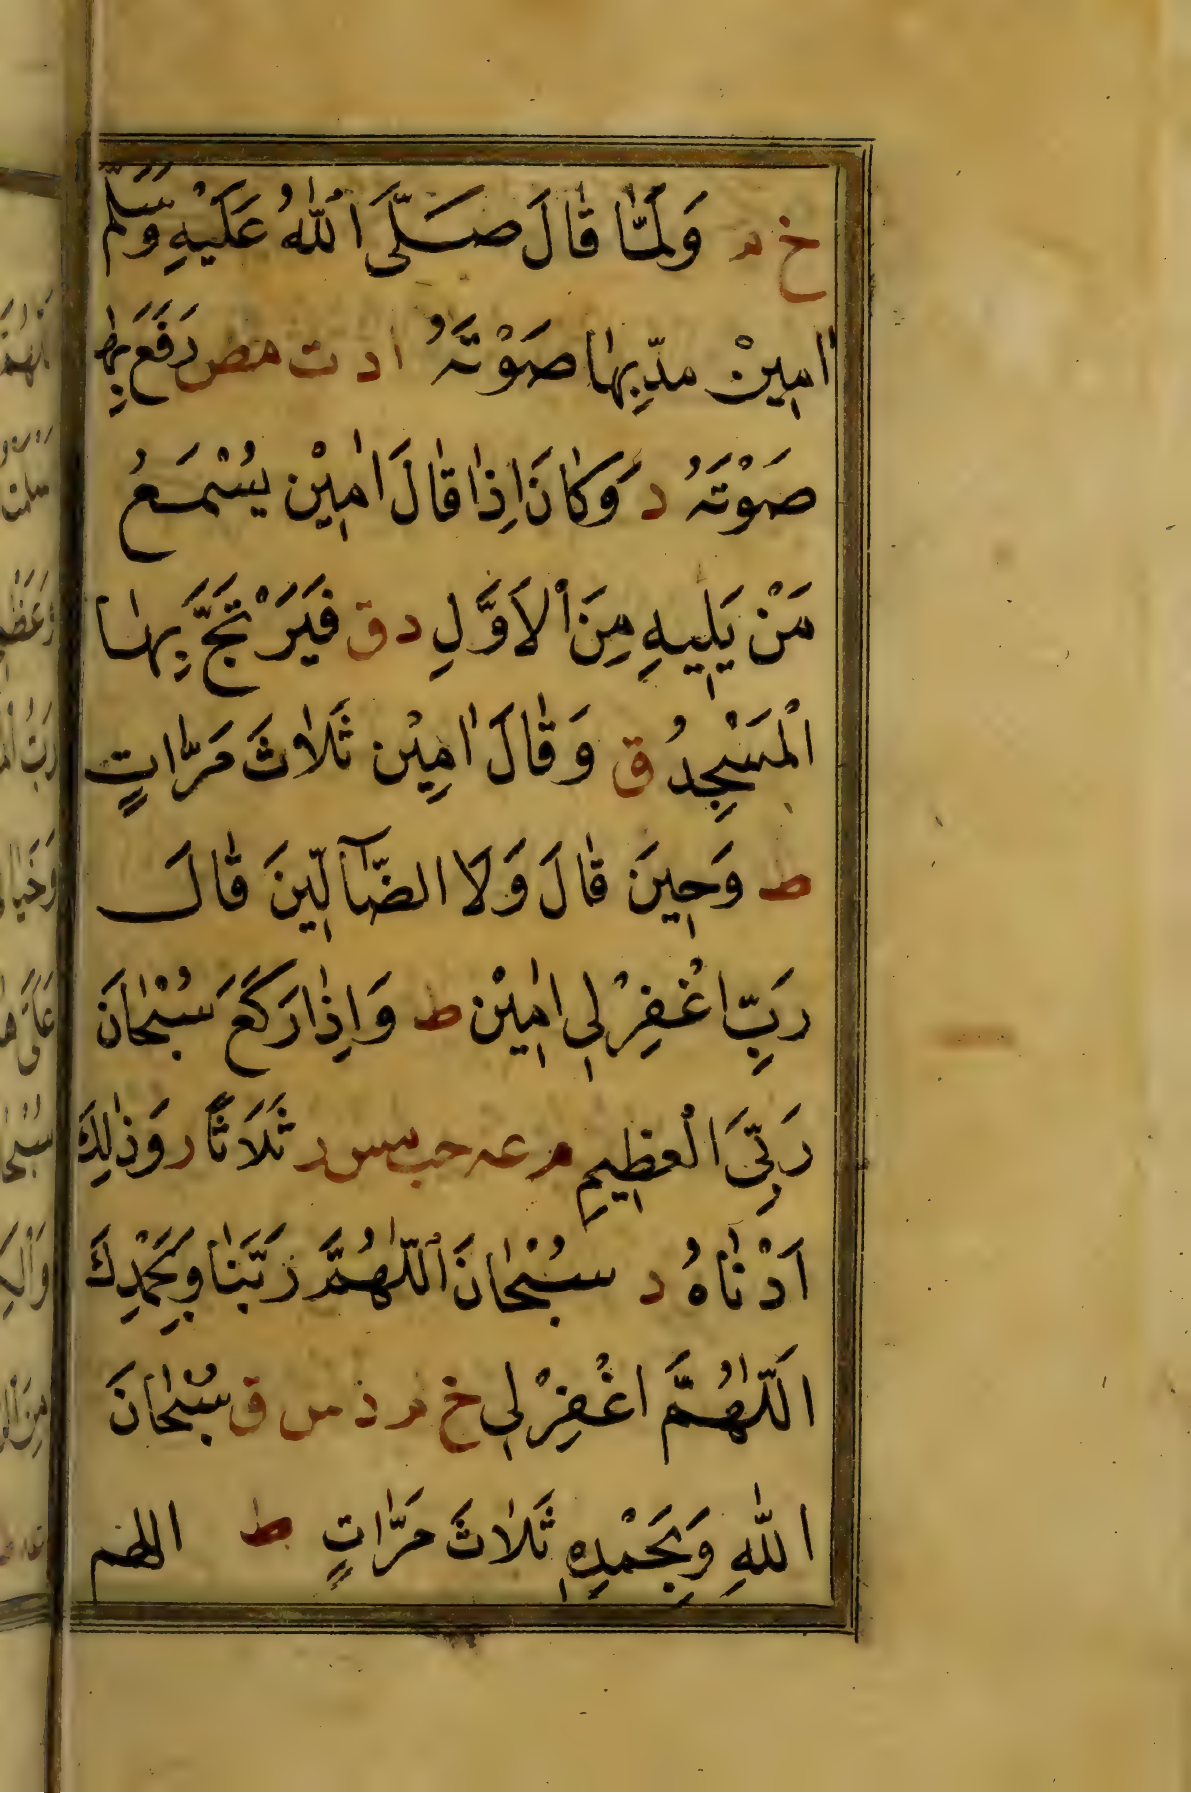 خ م وَلَمَّا قَالَ صَلَّى اللّٰهُ عَلَيْهِ وَسَلَّمَ
اٰمِينْ مدّ بِهَا صَوْتَهُ ا د ت مص رَفَعَ بِهَا
صَوْتَهُ د وَكَانَ اِذَا قَالَ اٰمِيْن يُسْمِعُ
مَنْ يَلِيهِ مِنَ الْاَوَّلِ د ق فَيَرْتَجَّ بِهَا
الْمَسْجِدُ ق وَقَالَ اٰمِيْن ثَلَاثَ مَرَّاتٍ
ط وَحِينَ قَالَ وَلَا الضَّآلِّينَ قَالَ
رَبِّ اغْفِرْ لِي اٰمِيْن ط وَاِذَا رَكَعَ سُبْحَانَ
رَبِّيَ الْعَظِيمِ م عه حب مس ر ثَلَاثًا ر وَذٰلِكَ
اَدْنَاهُ د سُبْحَانَ اللّٰهُمَّ رَبَّنَا وَبِحَمْدِكَ
اللّٰهُمَّ اغْفِرْ لِي خ م د س ق سُبْحَانَ
اللّٰهِ وَبِحَمْدِهِ ثَلَاثَ مَرَّاتٍ ط اللهم